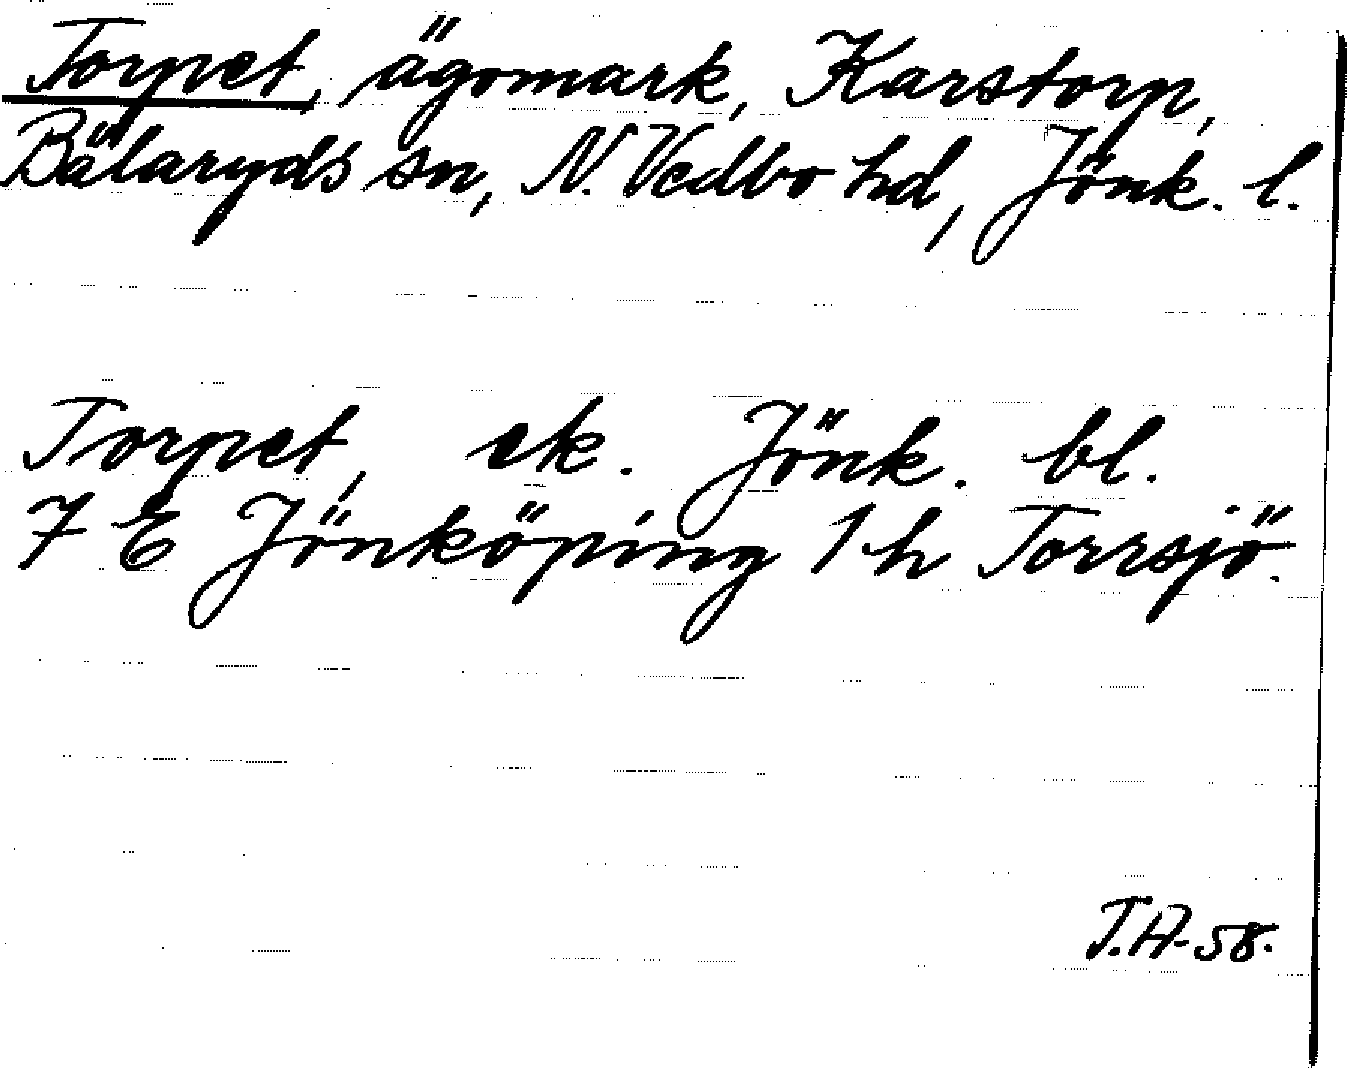 Torpet, ägomark, Karstorp,
Bälaryds sn, N. Vedbo hd, Jönk. l.
Torpet, ek. Jönk. bl.
7 E Jönköping 1 h Torrsjö.
T.A-58.